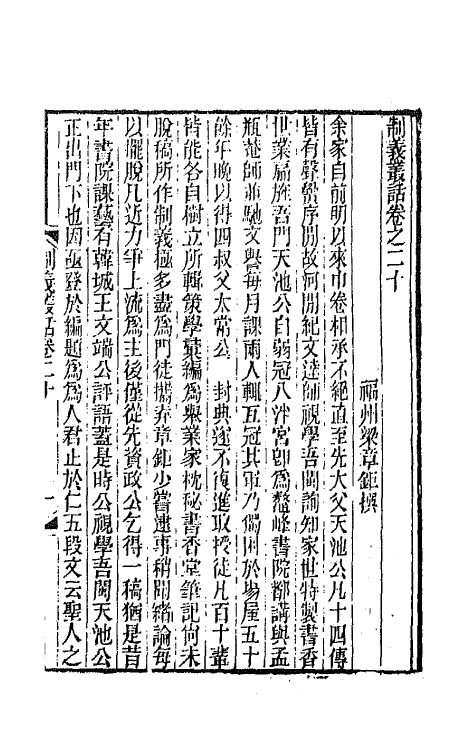 制義叢話卷之二十
福州梁章鉅撰
余家自前明以來巾卷相承不絕直至先大父天池公凡十四傳
皆有聲黌序間故河間紀文達師視學吾閩詢知家世特製書香
世業扁旌吾門天池公自弱冠入泮宮卽爲鰲峰書院都講與孟
瓶菴師並馳文譽每月課兩人輒互冠其軍乃獨困於場屋五十
餘年晚以得四叔父太常公 封典遂不復進取授徒凡百十輩
皆能各自樹立所輯策學彙編爲舉業家枕秘書香堂筆記尙未
脫稿所作制義極多盡爲門徒攜弆章鉅少嘗逮事稍聞緒論每
以擺脫凡近力爭上流爲主後僅從先資政公乞得一稿猶是昔
年書院課藝有韓城王文端公評語蓋是時公視學吾閩天池公
正出門下也因亟登於編題爲爲人君止於仁五段文云聖人之
制義叢話卷二十 一